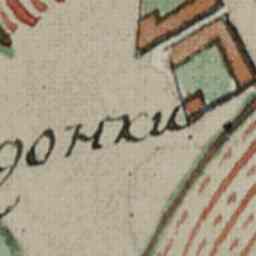 донки